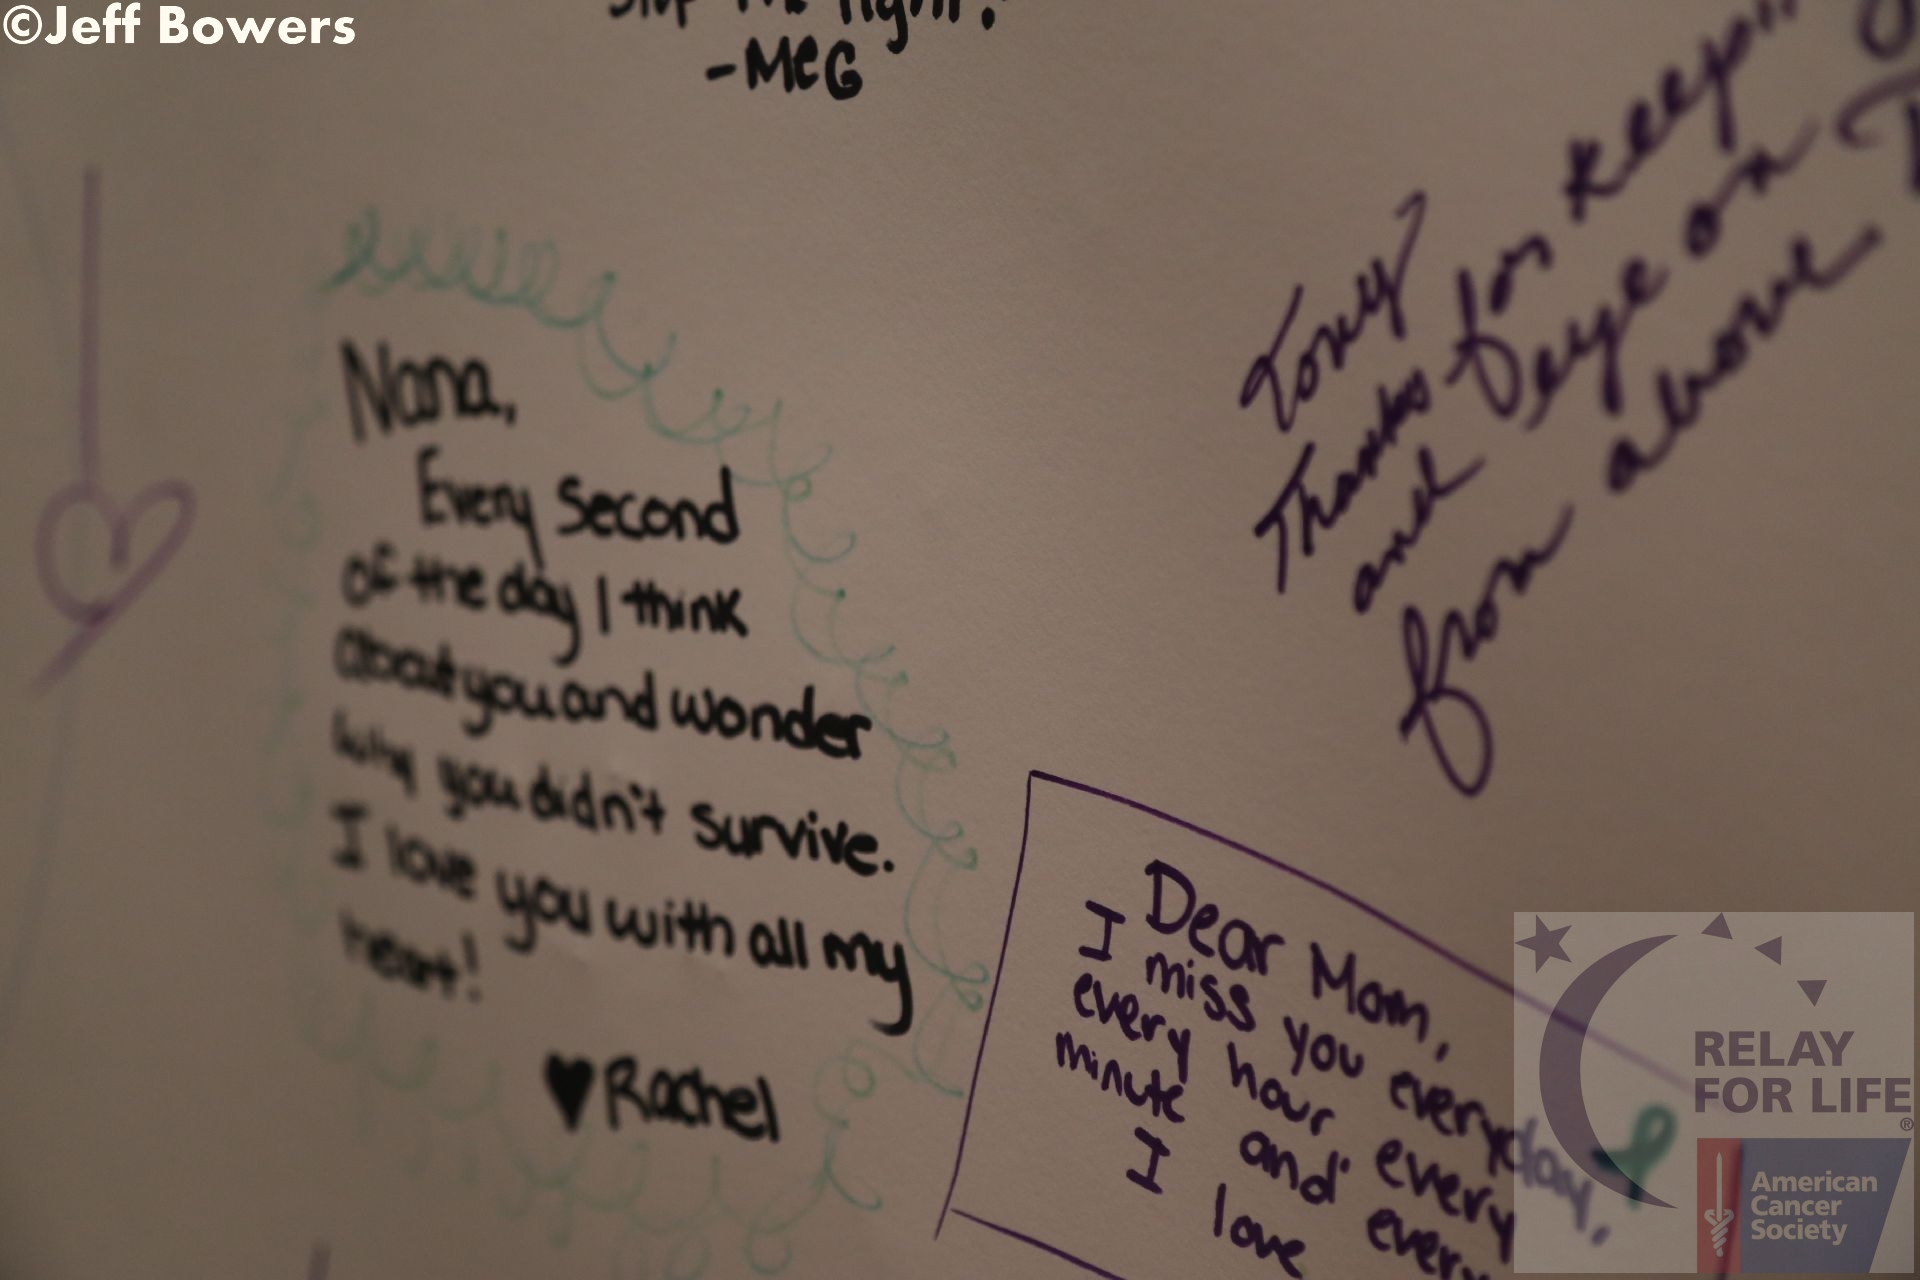 ©Jeff Bowers
-MEG
Tony
Thanks for
and eye on
from above
Nana,
Every second
of the day I think
about you and wonder
why you didn't survive.
I love you with all my
heart!
♥Rachel
Dear Mom,
I miss you everyday,
every hour every
minute and every
I love
RELAY
FOR LIFE®
American
Cancer
Society